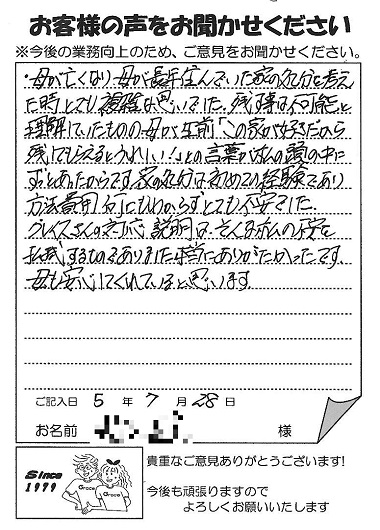 お客様の声をお聞かせください
※今後の業務向上のため、ご意見をお聞かせください。
・母が亡くなり母が長年住んでいた家の処分を考え
た時とても複雑な思いでした。残す事は不可能と
理解していたものの母が生前「この家が好きだから
残してもらえるとうれしい!」との言葉が私の頭の中に
ずっとあったからです。家の処分は初めての経験であり
方法、費用、何もわからずとても不安でした。
グレイスさんの対応、説明は、そんな私の不安を
払拭するものでありました。本当にありがたかったです。
母も安心してくれていると思います
ご記入日 5 年 7 月 28 日
お名前 様
Since
1979
Grace
Grace
貴重なご意見ありがとうございます!
今後も頑張りますので
よろしくお願いいたします